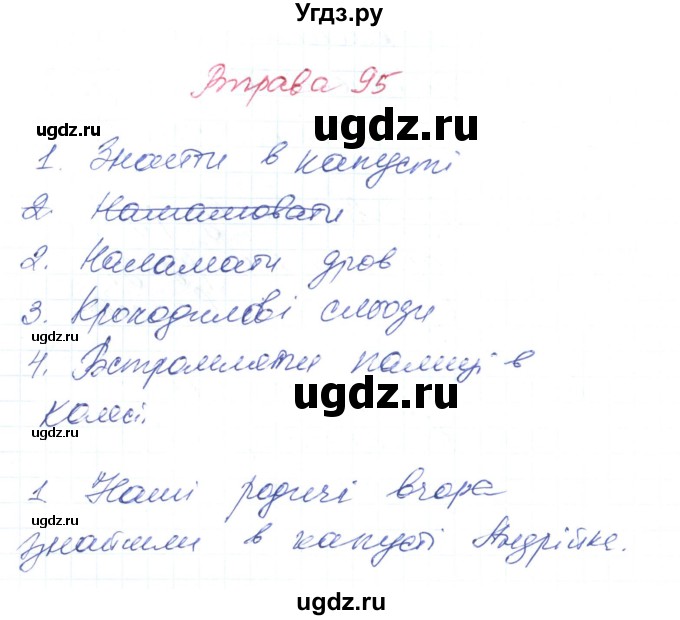 Угдз.ру
Вправа 95
ugdz.ru
ugdz.ru
1. Знайти в капусті
ugdz.ru
2. Наламовати
2. Наламати дров
3. Крокодилові сльози
ugdz.ru
4. Встромляти палиці в
ugdz.ru
колесі.
ugdz.ru
1 Наші родичі вчора
ugdz.ru
знайшли в капусті Андрійка.
ugdz.ru
ugdz.ru